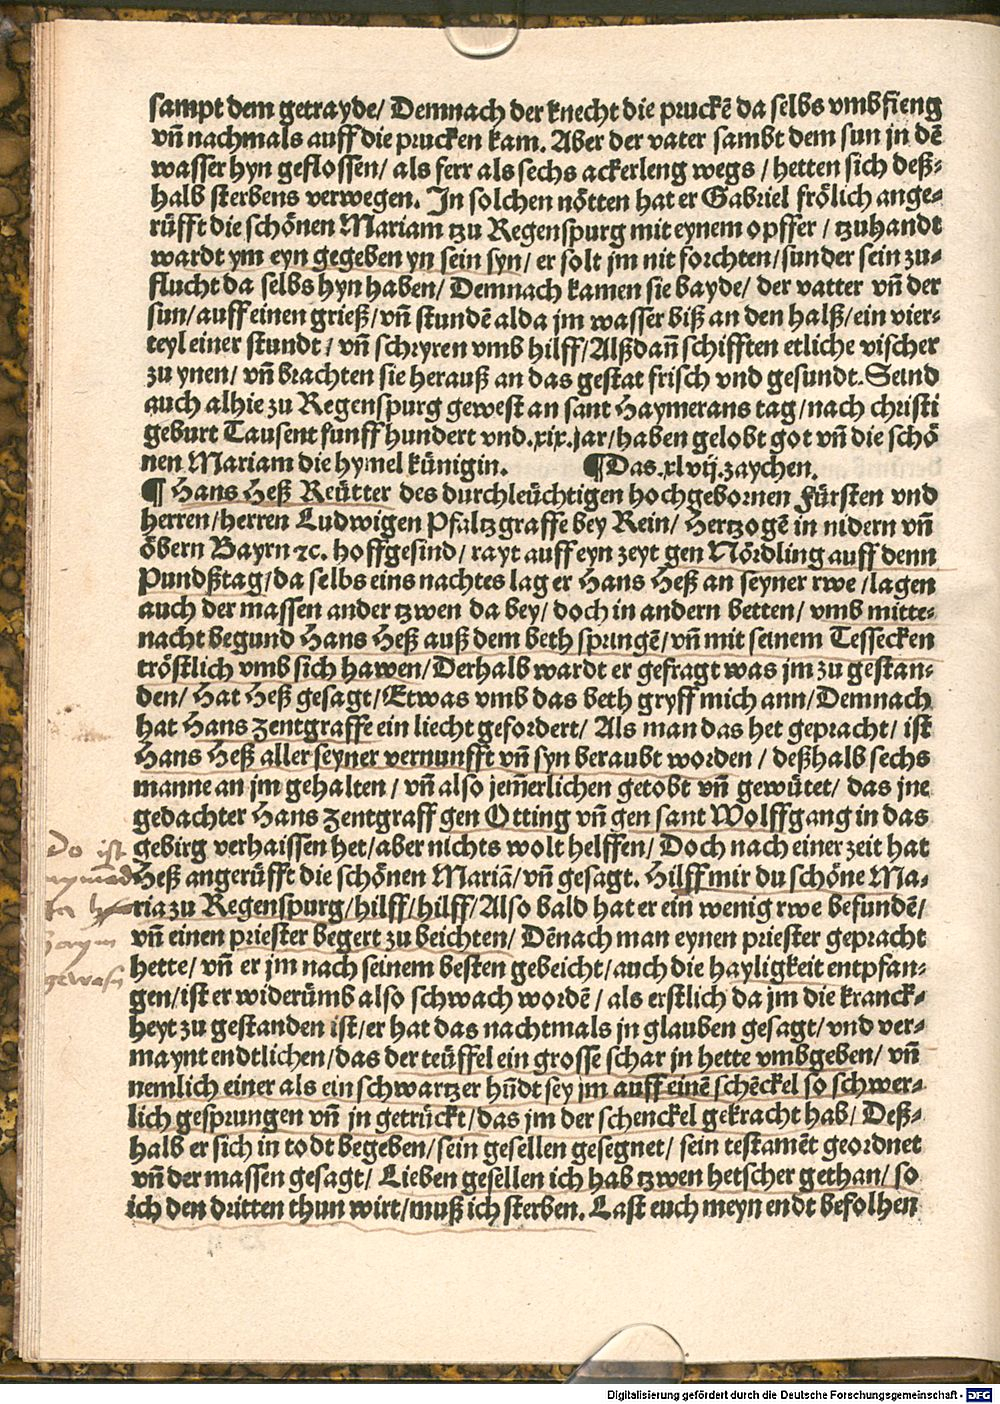 sampt dem getrayde/ Demnach der knecht die pruckē da selbs vmbfieng
vñ nachmals auff die prucken kam. Aber der vater sambt dem sun jn dē
wasser hyn geflossen/ als ferr als sechs ackerleng wegs /hetten sich deß⸗
halb sterbens verwegen. In solchen nötten hat er Gabriel frölich ange⸗
rüfft die schönen Mariam tzu Regenspurg mit eynem opffer / tzuhandt
wardt ym eyn gegeben yn sein syn/ er solt jm nit forchten/sunder sein zu⸗
flucht da selbs hyn haben/ Demnach kamen sie bayde/ der vatter vñ der
sun/auff einen grieß/vñ stundē alda jm wasser biß an den halß/ein vier⸗
teyl einer stundt/ vñ schryren vmb hilff/Alßdañ schifften etliche vischer
zu ynen/ vñ brachten sie herauß an das gestat frisch vnd gesundt. Seind
auch alhie zu Regenspurg gewest an sant Haymerans tag/nach christi
geburt Tausent funff hundert vnd.xix.jar/haben gelobt got vñ die schö
nen Mariam die hymel künigin. ¶Das.xlvij.zaychen.
¶ Hans Heß Reütter des durchleüchtigen hochgebornen Fürsten vnd
herren/herren Ludwigen Pfaltzgraffe bey Rein/ Hertzogē in nidern vñ
öbern Bayrn ⁊c. hoffgesind/ rayt auff eyn zeyt gen Nördling auff denn
Pundßtag/da selbs eins nachtes lag er Hans Heß an seyner rwe /lagen
auch der massen ander tzwen da bey/ doch in andern betten/ vmb mitte⸗
nacht begund Hans Heß auß dem beth springē/vñ mit seinem Tessecken
tröstlich vmb sich hawen/Derhalb wardt er gefragt was jm zu gestan⸗
den/ Hat Heß gesagt/Etwas vmb das beth gryff mich ann/Demnach
hat Hans Zentgraffe ein liecht gefordert/ Als man das het gepracht/ ist
Hans Heß aller seyner vernunfft vñ syn beraubt worden/ deßhalb sechs
manne an jm gehalten/ vñ also jem̄erlichen getobt vñ gewütet/ das jne
gedachter Hans Zentgraff gen Otting vñ gen sant Wolffgang in das
gebirg verhaissen het/aber nichts wolt helffen/ Doch nach einer zeit hat
Heß angerüfft die schönen Mariā/vñ gesagt. Hilff mir du schöne Ma⸗
ria zu Regenspurg/hilff/hilff/Also bald hat er ein wenig rwe befundē/
vñ einen priester begert zu beichten/ Dēnach man eynen priester gepracht
hette/ vñ er jm nach seinem besten gebeicht/auch die hayligkeit entpfan⸗
gen/ist er widerümb also schwach wordē/ als erstlich da jm die kranck⸗
heyt zu gestanden ist/er hat das nachtmals jn glauben gesagt/vnd ver⸗
maynt endtlichen/das der teüffel ein grosse schar jn hette vmbgeben/ vñ
nemlich einer als ein schwartzer hūdt sey jm auff einē schēckel so schwer⸗
lich gesprungen vñ jn getrückt/das jm der schenckel gekracht hab/ Deß⸗
halb er sich in todt begeben/sein gesellen gesegnet/ sein testamēt geordnet
vñ der massen gesagt/ Lieben gesellen ich hab tzwen hetscher gethan/ so
ich den dritten thun wirt/muß ich sterben. Last euch meyn endt befolhen
Do ist
gewesn
Digitalisierung gefördert durch die Deutsche Forschungsgemeinschaft - DFG